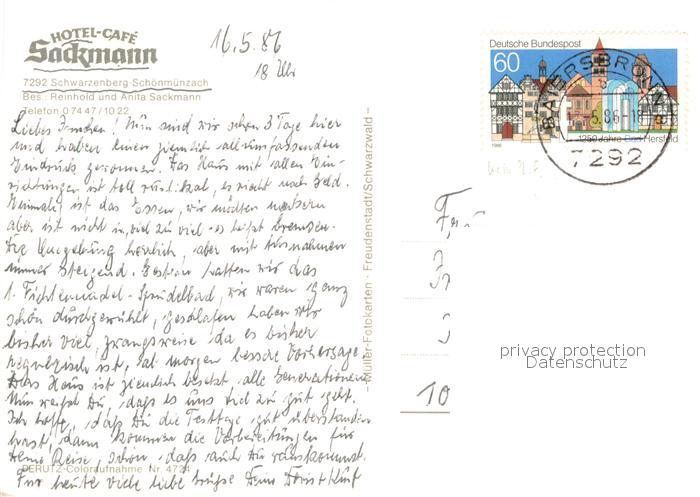 HOTEL-CAFÉ
Sackmann
7292 Schwarzenberg-Schönmünzach
Bes.: Reinhold und Anita Sackmann
Telefon 0 74 47 / 10 22
16.5.86
18 Uhr
Liebes ! Nun sind wir schon 3 Tage hier
und haben einen ziemlich allumfassenden
Eindruck gewonnen. Das Haus mit allen Ein-
richtungen ist toll rustikal, es riecht nach Geld.
Einmalig ist das Essen, wir möchten meckern
aber ist nicht in, viel zu viel - es heißt bremsen.
Die Umgebung herrlich, aber mit Ausnahmen
immer steigend. Gestern hatten wir das
1. Fichtennadel-Sprudelbad, wir waren ganz
schön durchgewühlt, geschlafen haben wir
bisher viel, zwangsweise da es bisher
regnerisch ist, ab morgen bessere Vorhersage.
Das Haus ist ziemlich besetzt, alle Generationen
Nun weißt Du, daß es uns viel zu gut geht.
Ich hoffe, daß Du die Testtage gut überstanden
hast, dann kommen die Vorbereitungen für
Deine Reise, schön, daß auch Du rauskommst.
Für heute viele liebe Grüße Deine
PERUTZ-Coloraufnahme Nr. 4724
Müller-Fotokarten · Freudenstadt/Schwarzwald
Deutsche Bundespost
60
1250 Jahre Bad Hersfeld
1986
BAIERSBRONN
7292
10
privacy protection
Datenschutz